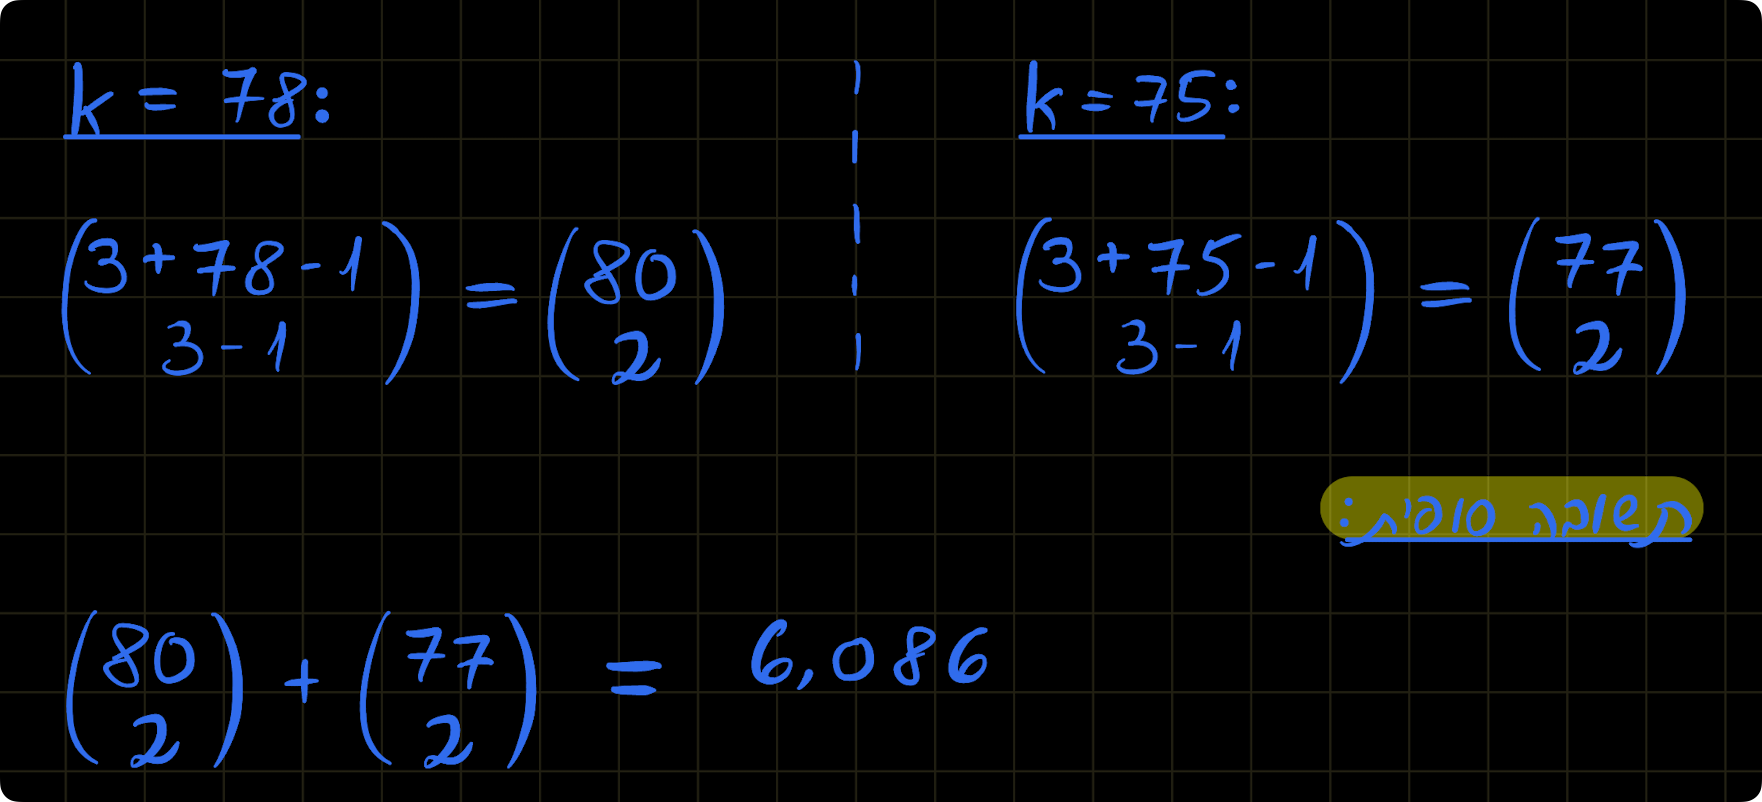 k = 78:
k = 75:
(3+78-1 / 3-1) = (80 / 2)
(3+75-1 / 3-1) = (77 / 2)
תשובה סופית:
(80 / 2) + (77 / 2) = 6,086